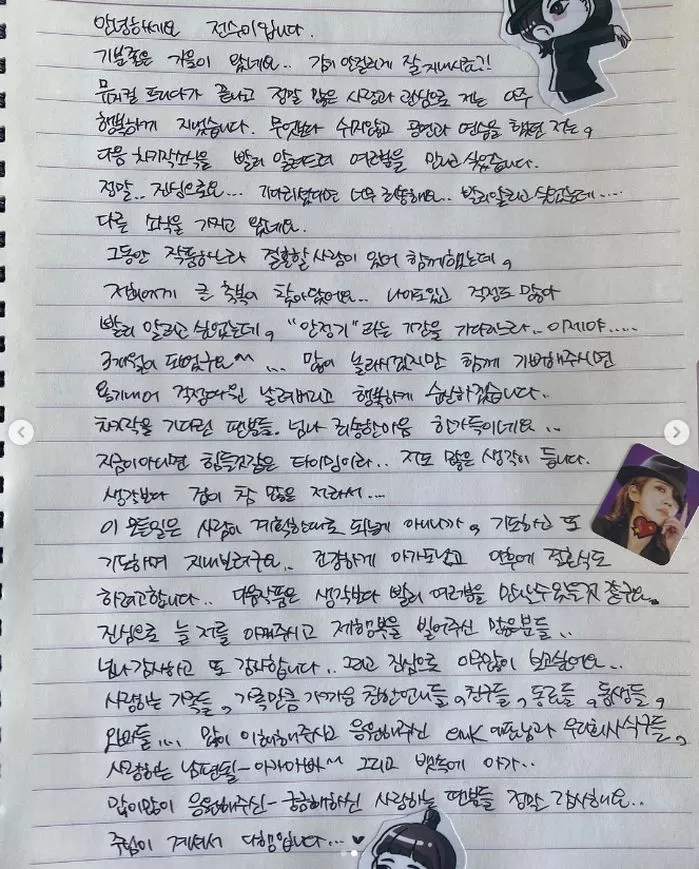 안녕하세요 전수미입니다.
기분좋은 가을이 왔네요.. 감기 안걸리게 잘 지내시죠?!
뮤지컬 프리다가 끝나고 정말 많은 사랑과 관심으로 저는 아주
행복하게 지냈습니다. 무엇보다 쉬지않고 공연과 연습을 했던 저는,
다음 차기작소식을 빨리 알려드려 여러분을 만나고 싶었습니다.
정말.. 진심으로요... 기다리셨다면 너무 죄송해요.. 빨리알리고 싶었는데....
다른 소식을 가지고 왔네요.
그동안 작품하느라 결혼할 사람이 있어 함께했는데,
저희에게 큰 축복이 찾아왔어요.. 나이도있고 걱정도 많아
빨리 알리고 싶었는데, "안정기"라는 기간을 기다리느라.. 이제야.....
3개월이 되었구요^^ ... 많이 놀라셨겠지만 함께 기뻐해주시면
용기내어 걱정따윈 날려버리고 행복하게 순산하겠습니다..
차기작을 기다린 팬분들. 넘나 죄송한마음 한가득이네요..
지금이아니면 힘들것같은 타이밍이라.. 저도 많은 생각이 듭니다.
생각보다 겁이 참 많은 저라서....
이 모든일은 사람이 계획한대로 되는게 아니니까, 기도하고 또
기도하며 지내보려구요.. 건강하게 아가도낳고 이후에 결혼식도
하려고합니다.. 다음작품은 생각보다 빨리 여러분을 만날수있을것 같구요.
진심으로 늘 저를 아껴주시고 제행복을 빌어주신 많은분들..
넘나감사하고 또 감사합니다.. 그리고 진심으로 아주많이 보고싶어요..
사랑하는 가족들, 가족만큼 가까운 친한언니들, 친구들, 동료들, 동생들,
오빠들.... 많이 이해해주시고 응원해주신 emk 대표님과 우리회사식구들,
사랑하는 남편될- 아가아빠^ 그리고 뱃속에 아가..
많이많이 응원해주신- 궁금해하신 사랑하는 팬분들 정말 감사해요..
주님이 계셔서 다행입니다...♥